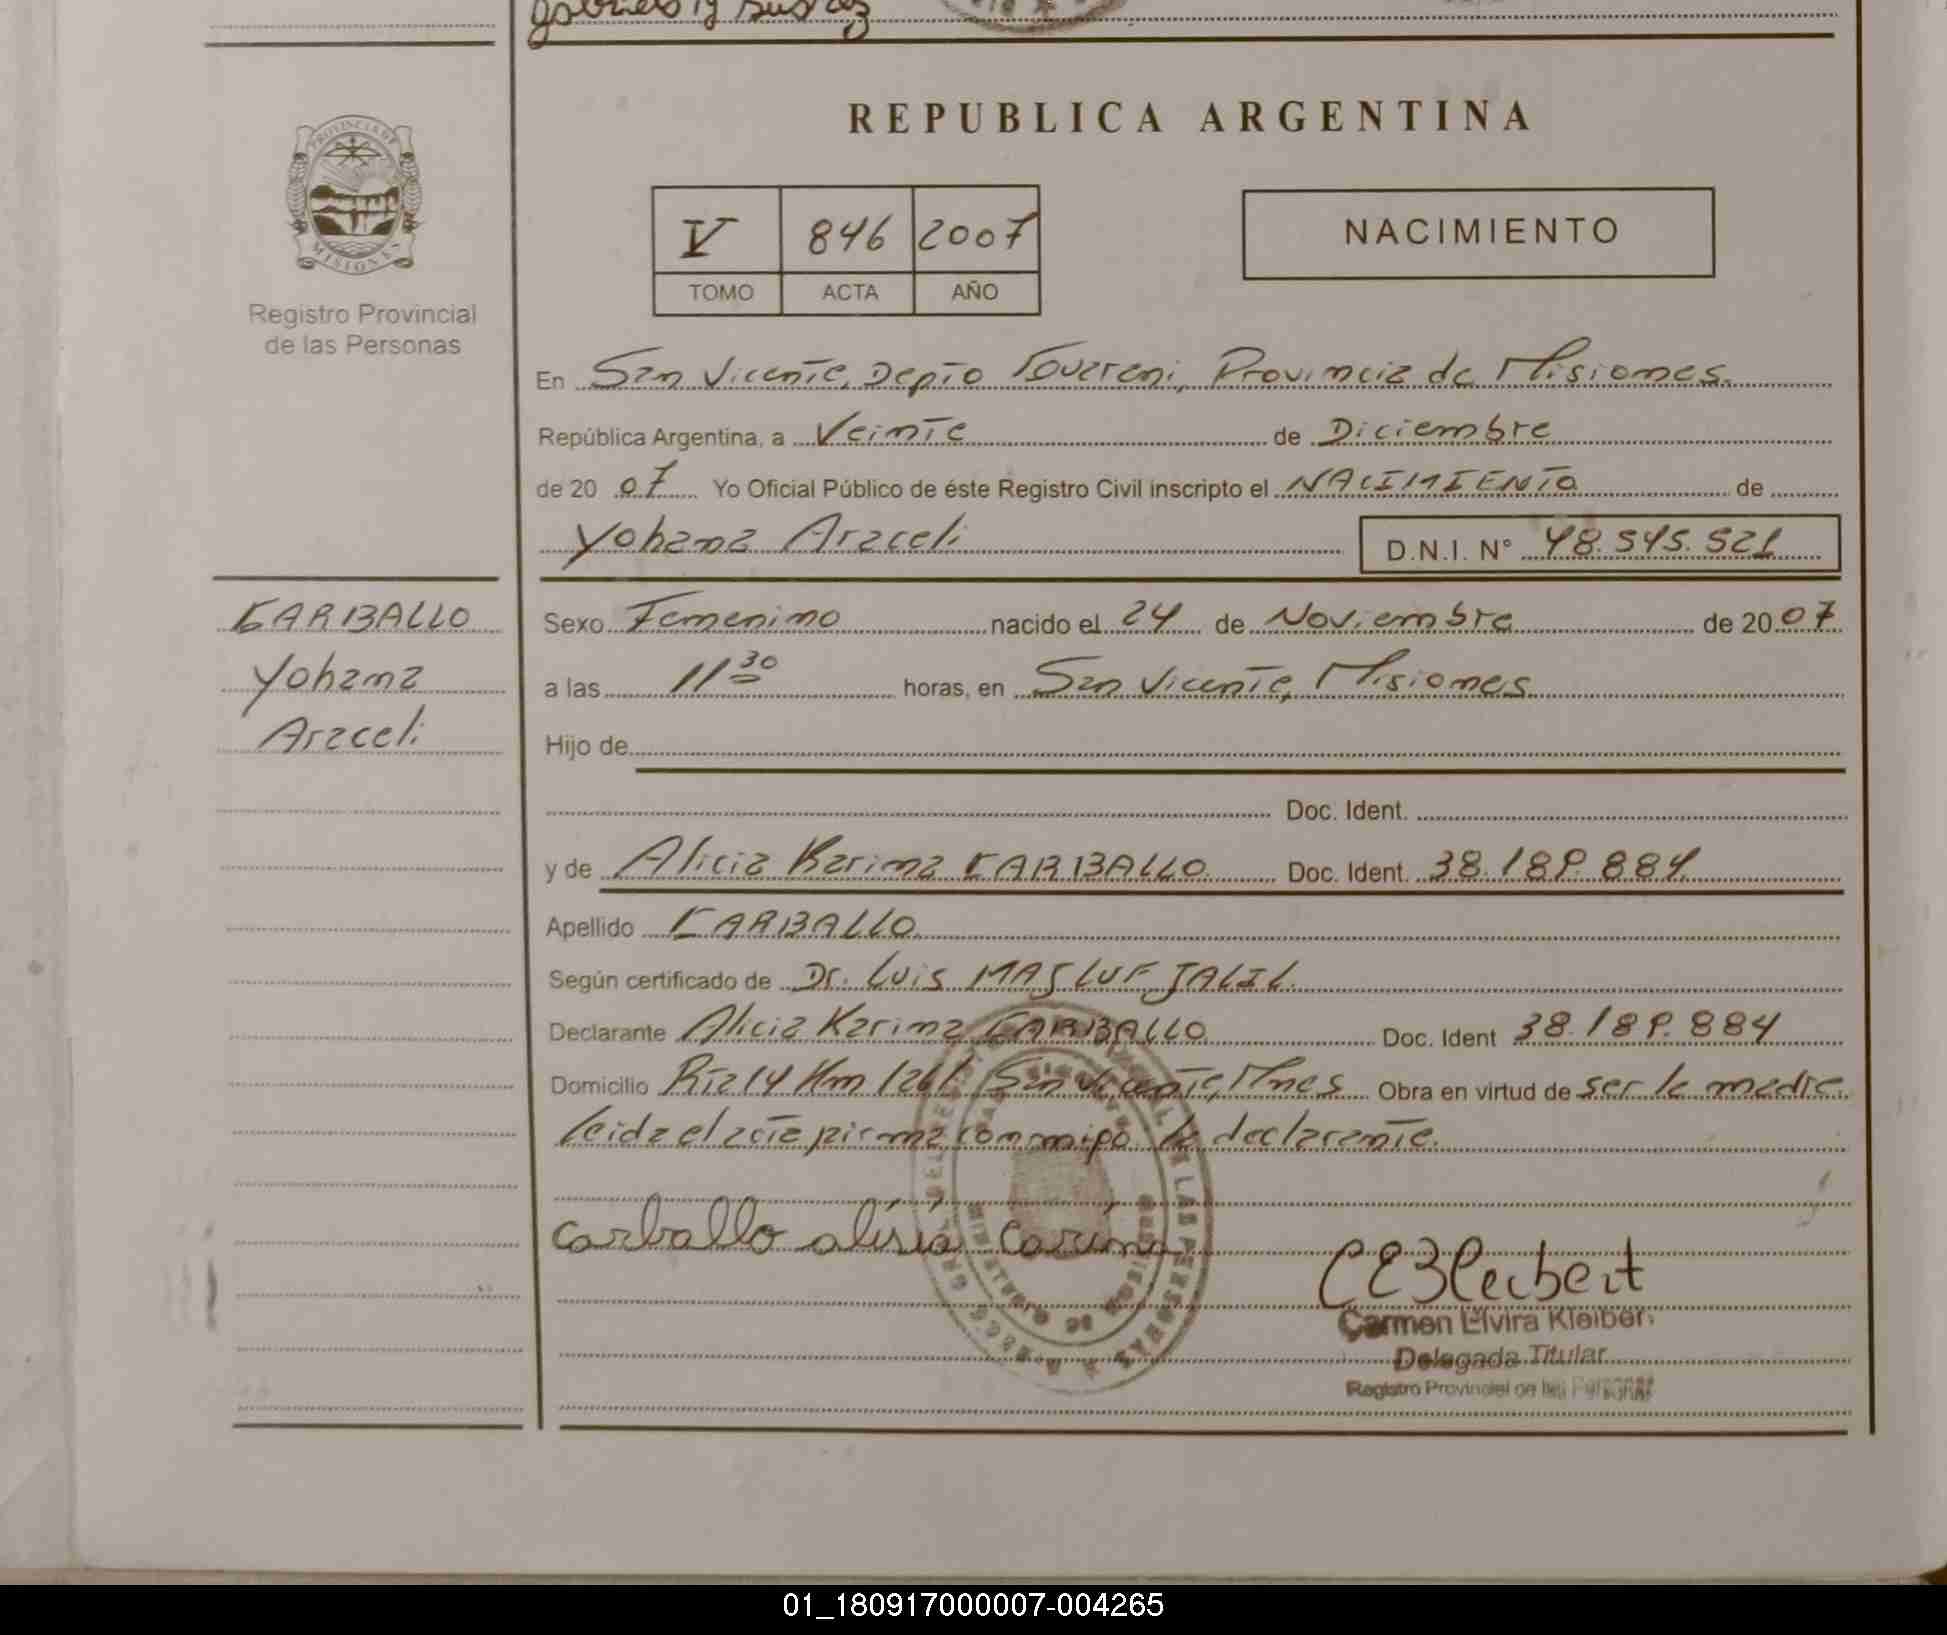 gabriela y suarez
REPUBLICA ARGENTINA
PROVINCIA DE
MISIONES
Registro Provincial
de las Personas
V 846 2007
TOMO ACTA AÑO
NACIMIENTO
En San Vicente, Depto Guarani, Provincia de Misiones.
República Argentina, a Veinte de Diciembre
de 2007 Yo Oficial Público de éste Registro Civil inscripto el NACIMIENTO de
Yohana Araceli D.N.I. N° 48.545.521
CARBALLO
Yohana
Araceli
Sexo Femenino nacido el 24 de Noviembre de 2007
a las 11 30 horas, en San Vicente, Misiones
Hijo de
Doc. Ident.
y de Alicia Karina CARBALLO. Doc. Ident. 38.189.884
Apellido CARBALLO
Según certificado de Dr. Luis MASLUF JALIL.
Declarante Alicia Karina CARBALLO Doc. Ident 38.189.884
Domicilio Rta 14 Km 1261 San Vicente, Mnes Obra en virtud de ser la madre.
leida el acta firma conmigo la declarante.
carballo alisia Carina
CEKleibert
Carmen Elvira Kleiber
Delegada Titular
Registro Provincial de las Personas
01_180917000007-004265